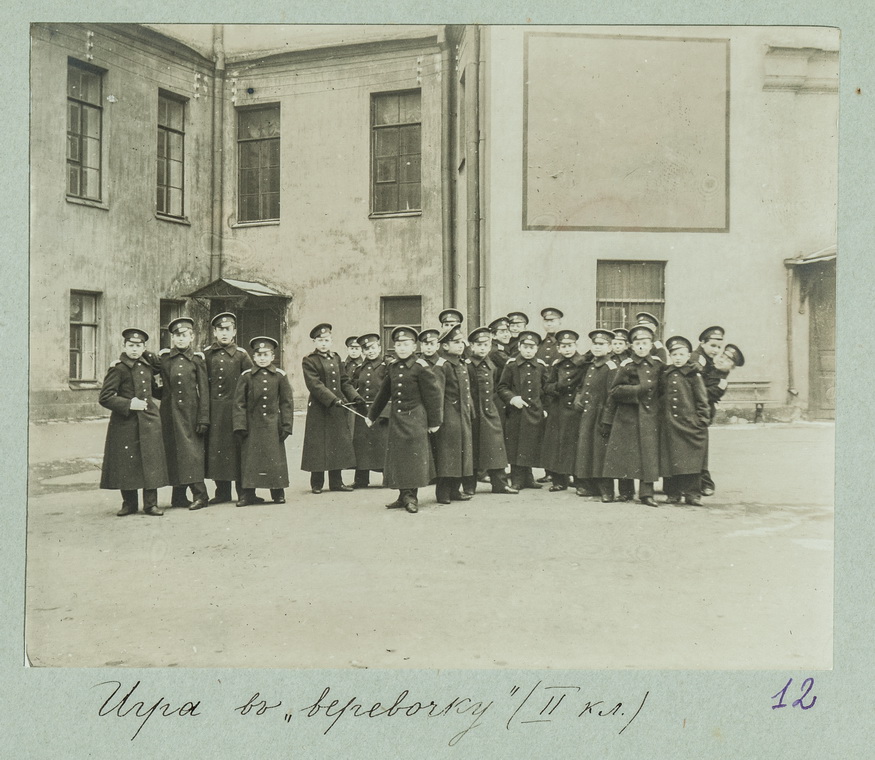 Игра въ „веревочку" (II кл.)
12